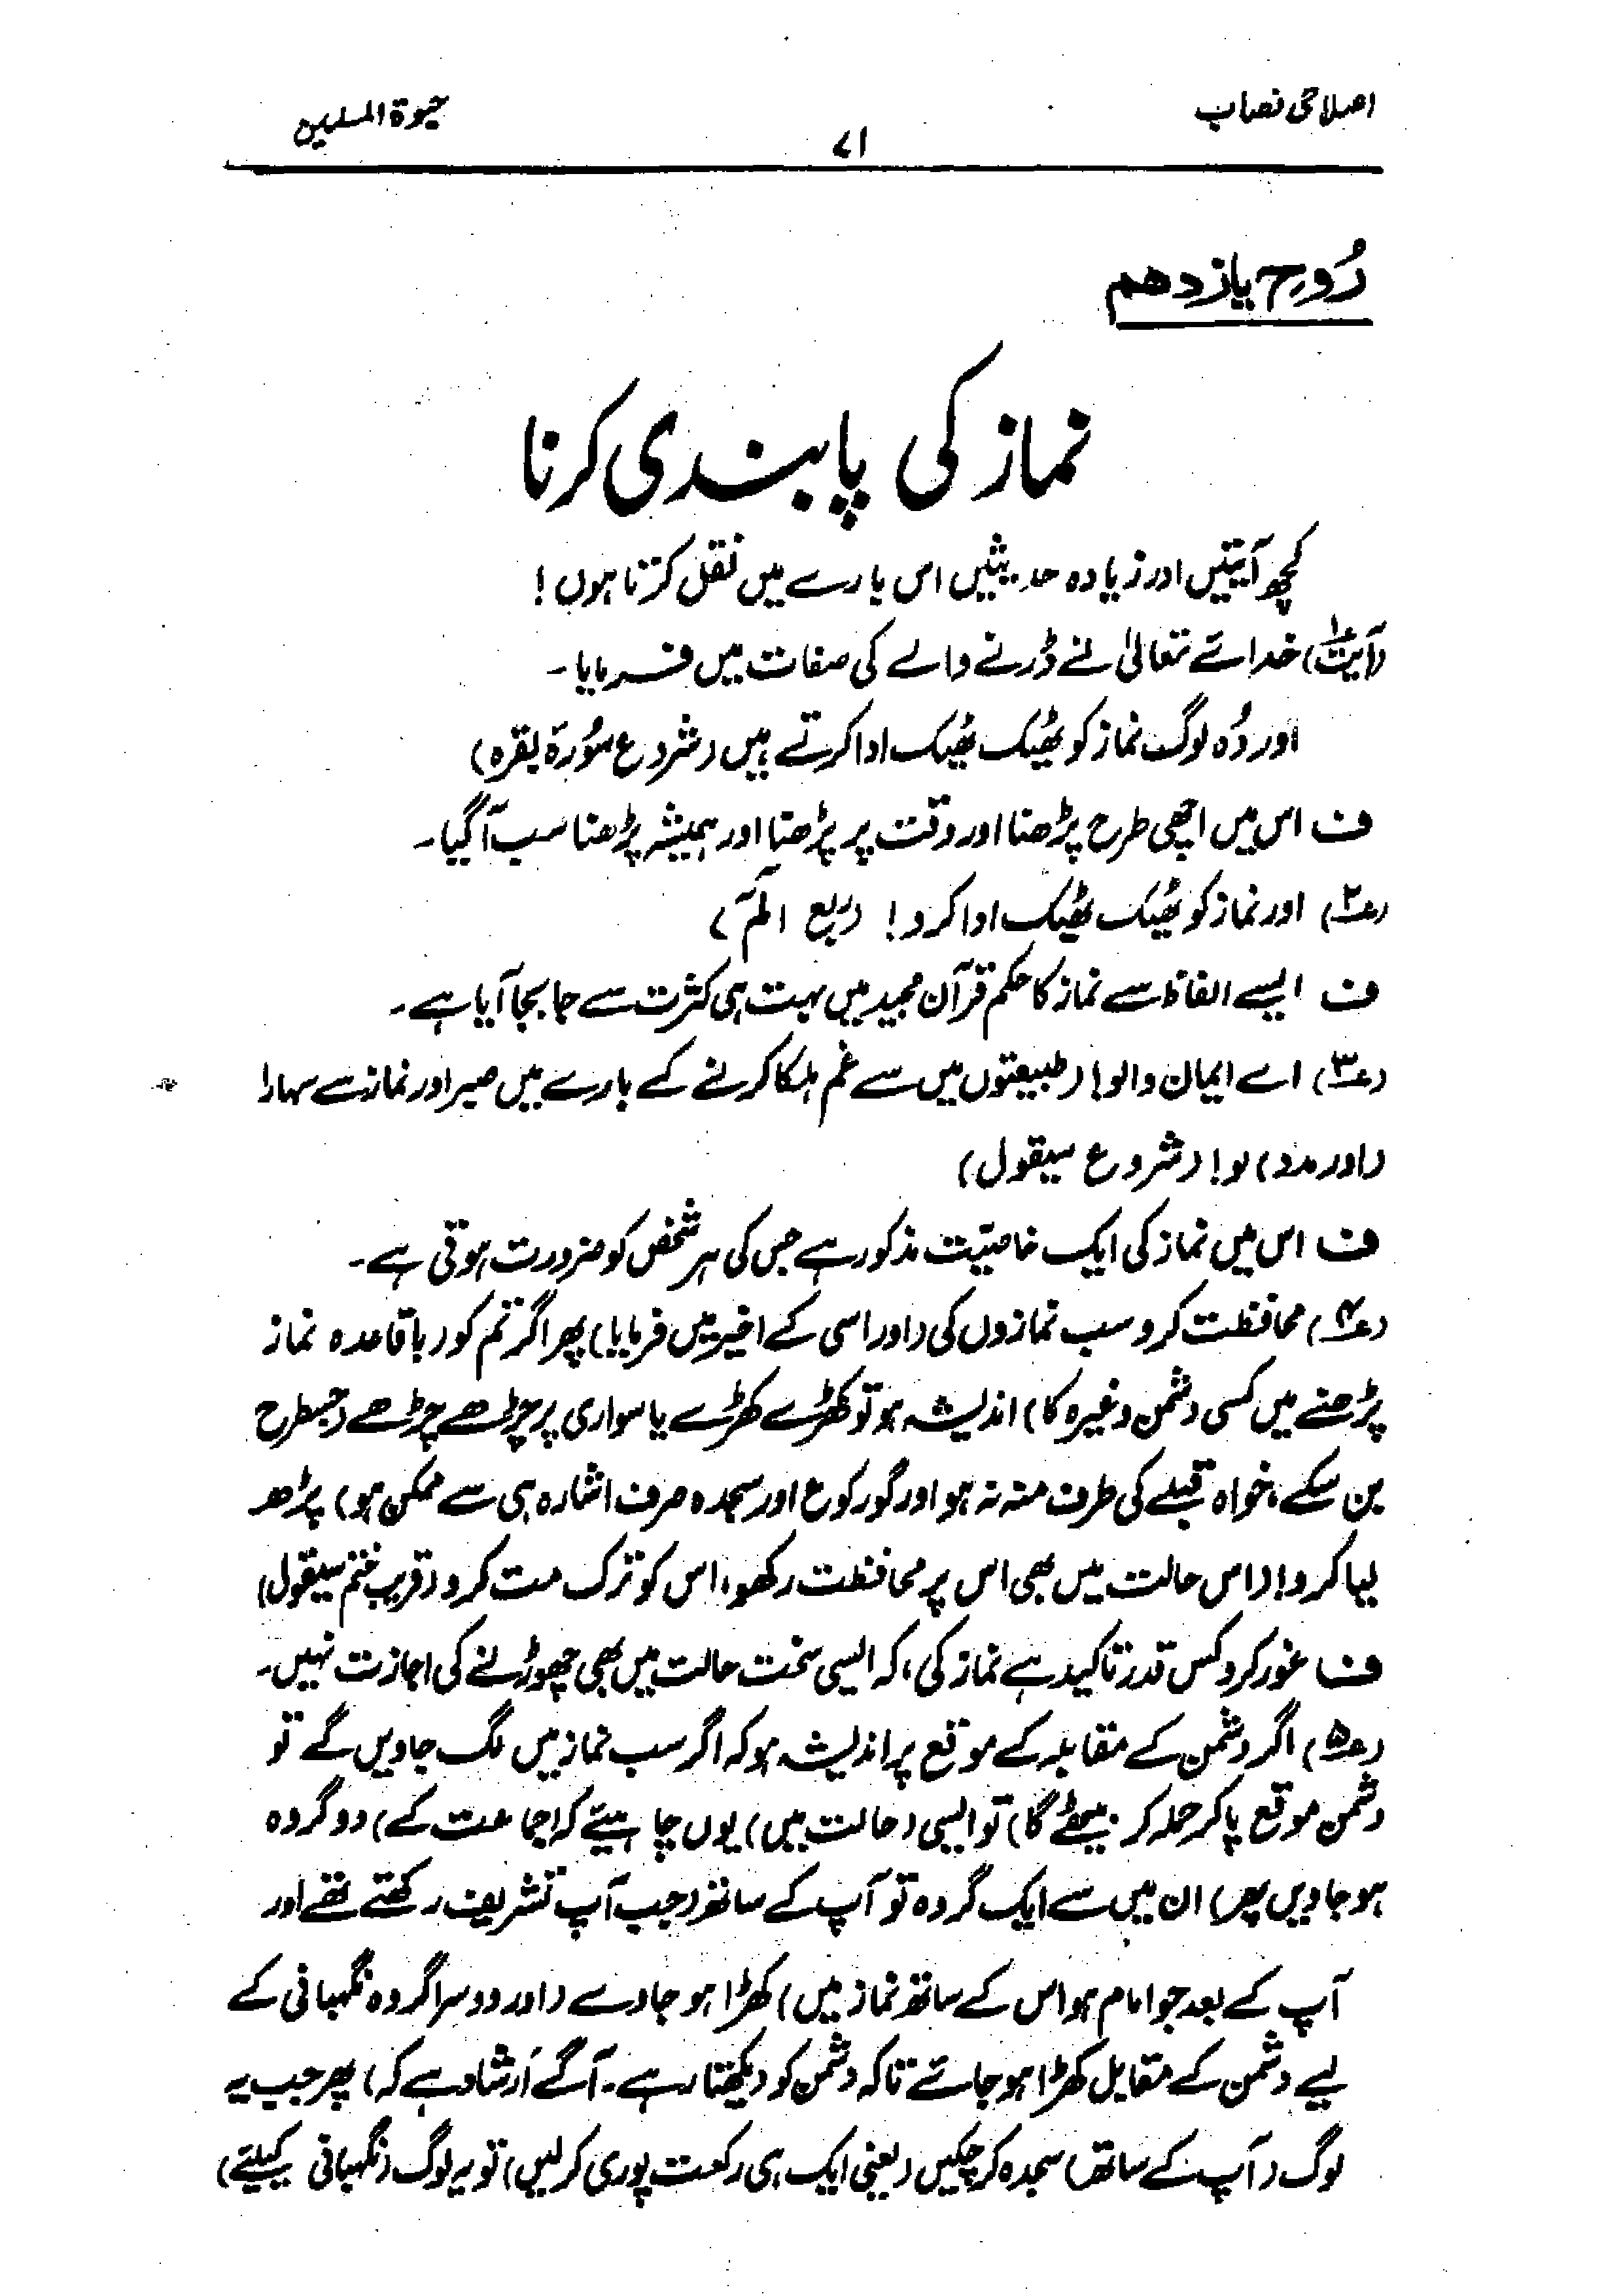 اصلاحی نصاب
حیوۃ المسلمین
۷۱
رُوح یازدھم
نماز کی پابندی کرنا
کچھ آیتیں اور زیادہ حدیثیں اس بارے میں نقل کرتا ہوں!
(آیت ۱) خدائے تعالیٰ نے ڈرنے والے کی صفات میں فرمایا۔
اور وُہ لوگ نماز کو ٹھیک ٹھیک ادا کرتے ہیں (شروع سُورۃ بقرہ)
ف اس میں اچھی طرح پڑھنا اور وقت پر پڑھنا اور ہمیشہ پڑھنا سب آگیا۔
(۲) اور نماز کو ٹھیک ٹھیک ادا کرو! (ربع الٓمّٓ)
ف ایسے الفاظ سے نماز کا حکم قرآن مجید میں بہت ہی کثرت سے جابجا آیا ہے۔
(۳) اے ایمان والو! (طبیعتوں میں سے غم ہلکا کرنے کے بارے میں صبر اور نماز سے سہارا
(اور مدد) لو! (شروع سیقول)
ف اس میں نماز کی ایک خاصیّت مذکور ہے جس کی ہر شخص کو ضرورت ہوتی ہے۔
(۴) محافظت کرو سب نمازوں کی (اور اسی کے اخیر میں فرمایا) پھر اگر تم کو (باقاعدہ نماز
پڑھنے میں کسی دشمن وغیرہ کا) اندیشہ ہو تو کھڑے کھڑے یا سواری پر چڑھے چڑھے (جسطرح
بن سکے، خواہ قبلے کی طرف منہ نہ ہو اور گو رکوع اور سجدہ صرف اشارہ ہی سے ممکن ہو) پڑھ
لیا کرو! (اس حالت میں بھی اس پر محافظت رکھو، اس کو ترک مت کرو (قریب ختم سیقول)
ف غور کرو کس قدر تاکید ہے نماز کی، کہ ایسی سخت حالت میں بھی چھوڑنے کی اجازت نہیں۔
(۵) اگر دشمن کے مقابلہ کے موقع پر اندیشہ ہو کہ اگر سب نماز میں لگ جاویں گے تو
دشمن موقع پا کر حملہ کر بیٹھے گا) تو ایسی (حالت میں) یوں چاہیئے کہ (جماعت کے) دو گروہ
ہو جاویں پھر) ان میں سے ایک گروہ تو آپ کے ساتھ (جب آپ تشریف رکھتے تھے اور
آپ کے بعد جو امام ہو اس کے ساتھ نماز میں) کھڑا ہو جاوے (اور دوسرا گروہ نگہبانی کے
لیے دشمن کے مقابل کھڑا ہو جائے تاکہ دشمن کو دیکھتا رہے۔ آگے اَرشاد ہے کہ) پھر جب یہ
لوگ (آپ کے ساتھ) سجدہ کر چکیں (یعنی ایک ہی رکعت پوری کر لیں) تو یہ لوگ (نگہبانی کیلئے)